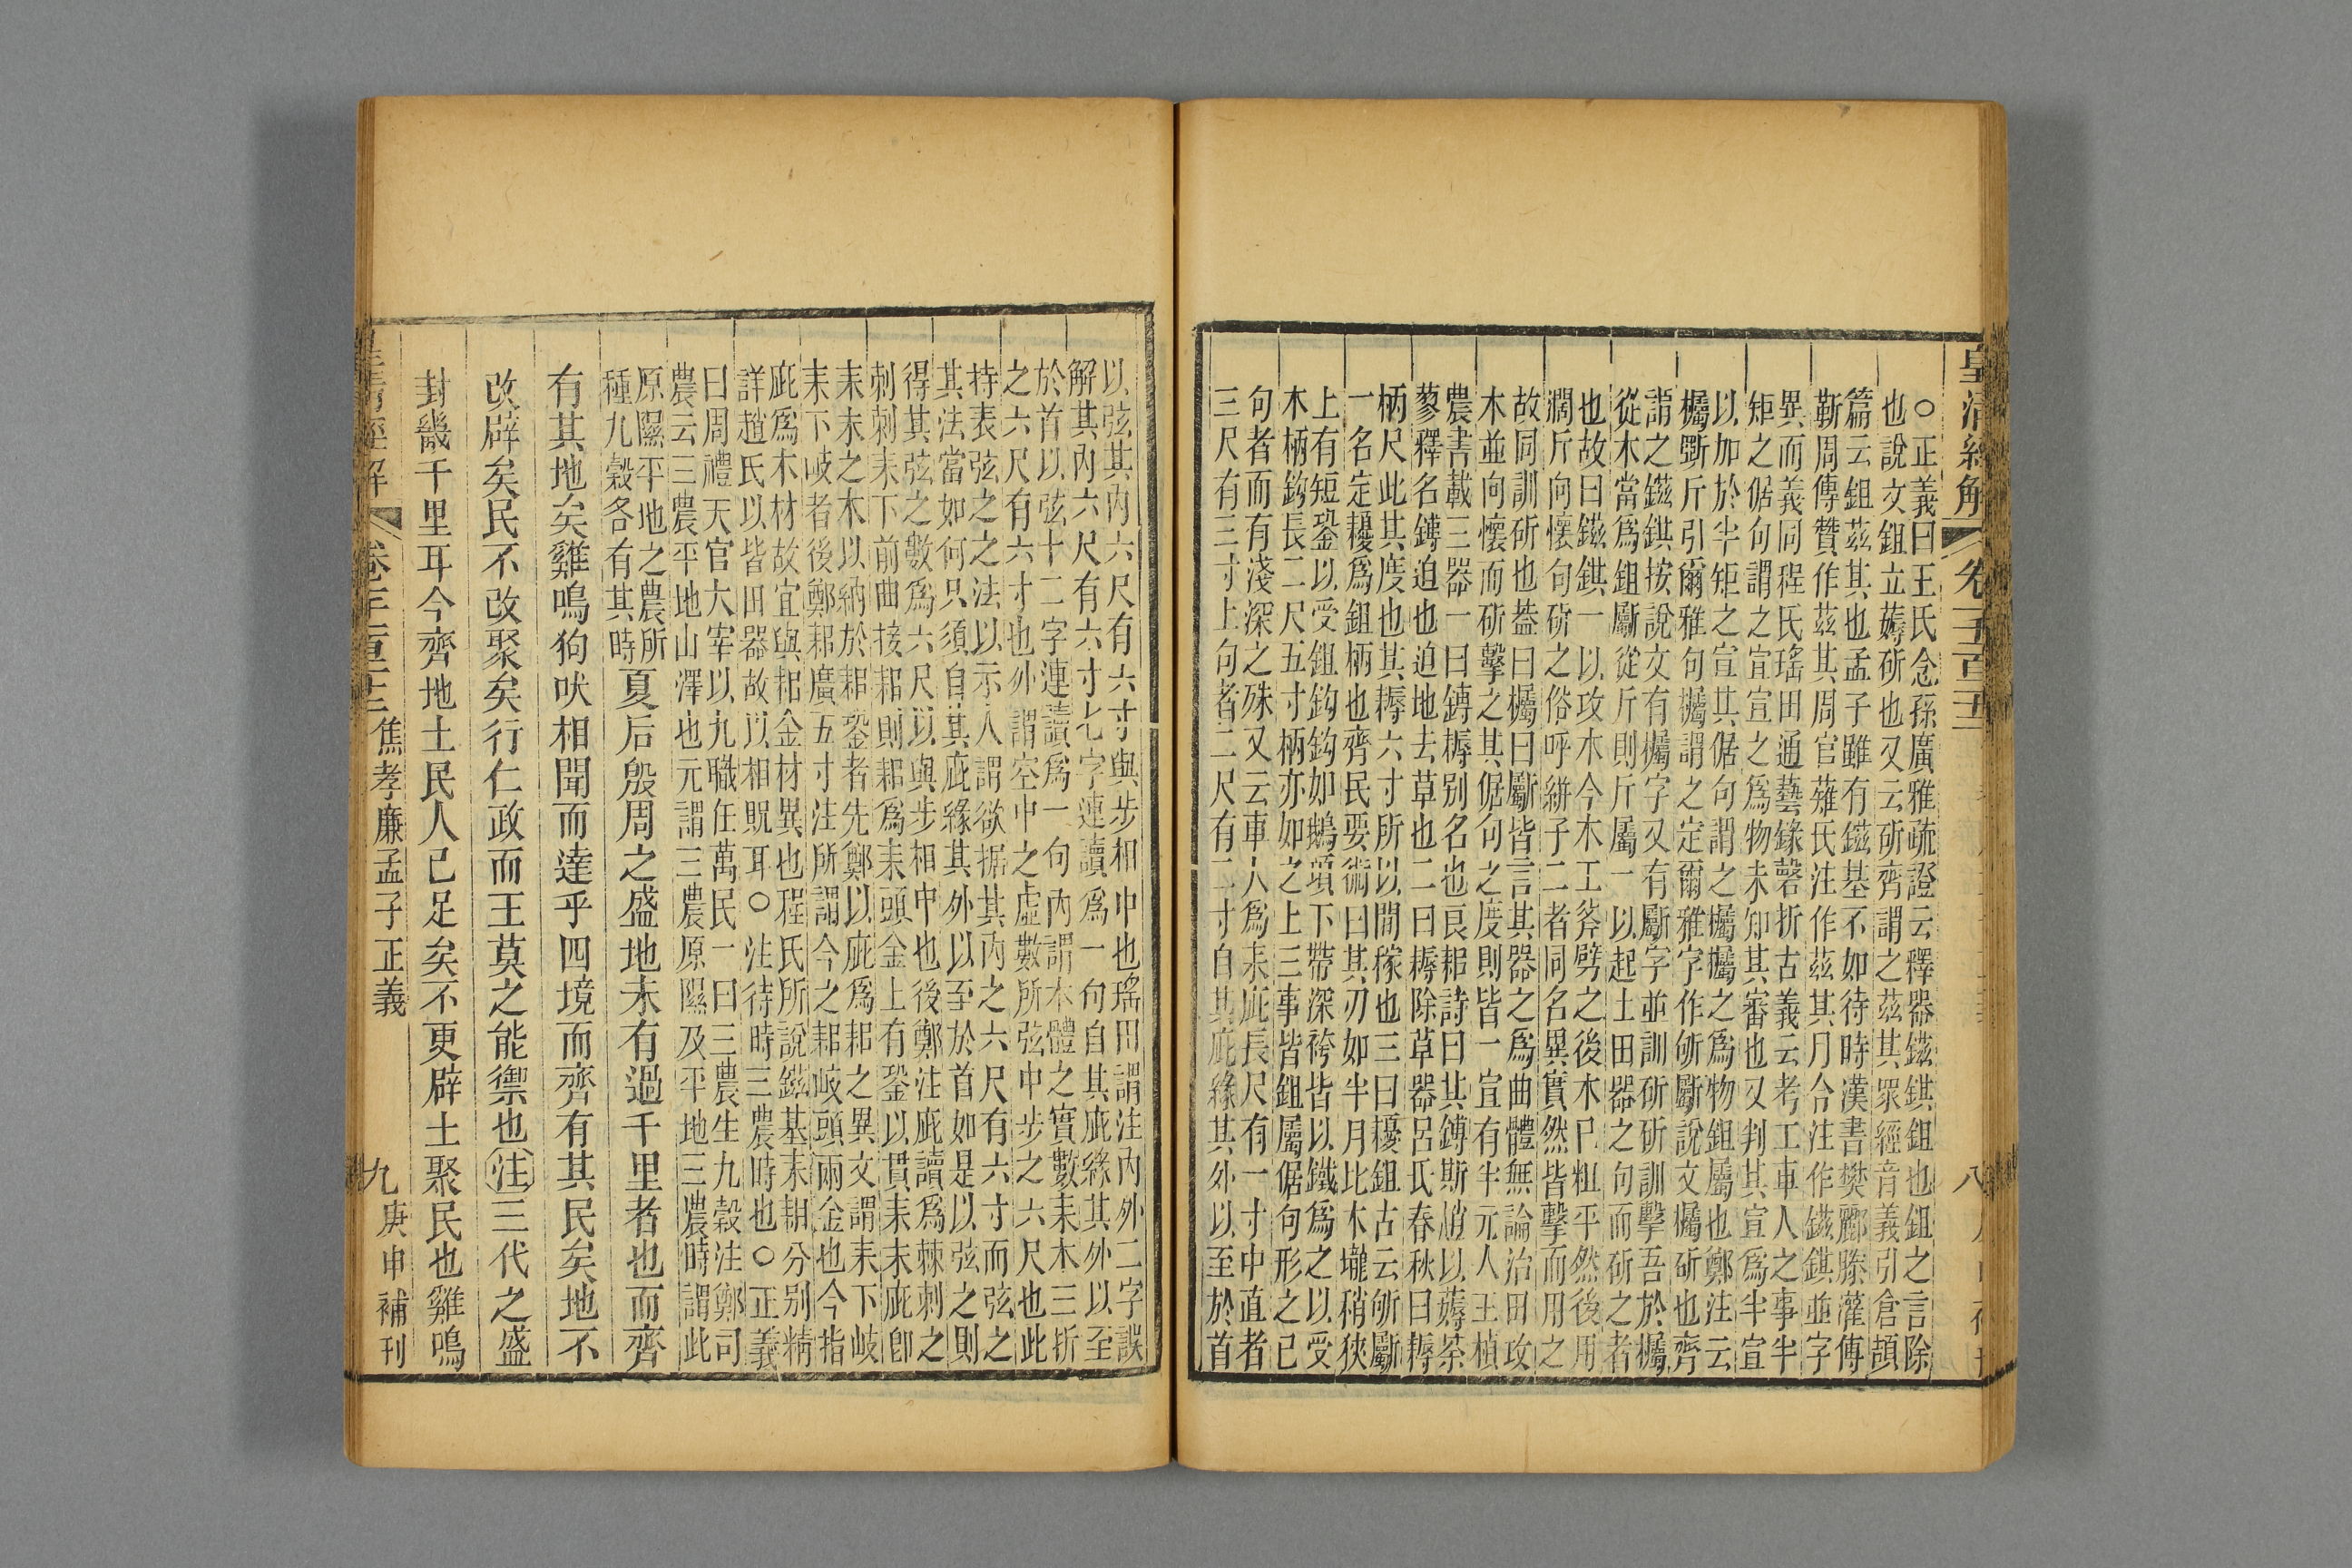 皇清經解
八
○正義曰王氏念孫廣雅疏證云釋器鎡錤鉏也鉏之言除
也說文鉏立薅斫也又云斫齊謂之茲其眾經音義引倉頡
篇云鉏茲其也孟子雖有鎡基不如待時漢書樊酈滕灌傅
靳周傳贊作茲其周官薙氏注作茲其月令注作鎡錤並字
異而義同程氏瑤田通藝錄磬折古義云考工車人之事半
矩之倨句謂之宣宣之為物未知其審也又判其宣為半宣
以加於半矩之宣其倨句謂之欘欘之為物鉏屬也鄭注云
欘斲斤引爾雅句欘謂之定爾雅字作斪斸說文欘斫也齊
謂之鎡錤按說文有欘字又有斸字並訓斫斫訓擊吾於欘
從木當為鉏斸從斤則斤屬一以起土田器之句而斫之者
也故曰鎡錤一以攻木今木工斧劈之後木已粗平然後用
濶斤向懷句斫之俗呼錛子二者同名異實然皆擊而用之
故同訓斫也葢曰欘曰斸皆言其器之為曲體無論治田攻
木並向懷而斫擊之其倨句之度則皆一宣有半元人王楨
農書載三器一曰鎛耨別名也良耜詩曰其鎛斯趙以薅荼
蓼釋名鎛迫也迫地去草也二曰耨除草器呂氏春秋曰耨
柄尺此其度也其耨六寸所以間稼也三曰耰鉏古云斪斸
一名定耰為鉏柄也齊民要術曰其刃如半月比木壠稍狹
上有短銎以受鉏鈎鈎如鵝項下帶深袴皆以鐵為之以受
木柄鈎長二尺五寸柄亦如之上三事皆鉏屬倨句形之已
句者而有淺深之殊又云車人為耒庇長尺有一寸中直者
三尺有三寸上句者二尺有二寸自其庇緣其外以至於首
以弦其內六尺有六寸與步相中也瑤田謂注內外二字誤
解其內六尺有六寸七字連讀為一句自其庇緣其外以至
於首以弦十二字連讀為一句內謂本體之實數耒木三折
之六尺有六寸也外謂空中之虛數所弦中步之六尺也此
持表弦之之法以示人謂欲据其內之六尺有六寸而弦之
其法當如何只須自其庇緣其外以至於首如是以弦之則
得其弦之數為六尺以與步相中也後鄭注庇讀為棘刺之
刺刺耒下前曲接耜則耜為耒頭金上有銎以貫耒末庇卽
耒末之木以納於耜銎者先鄭以庇為耜之異文謂耒下岐
耒下岐者後鄭耜廣五寸注所謂今之耜岐頭兩金也今指
庇為木材故宜與耜金材異也程氏所說鎡基耒耜分別精
詳趙氏以皆田器故以相貺耳○注待時三農時也○正義
曰周禮天官大宰以九職任萬民一曰三農生九穀注鄭司
農云三農平地山澤也元謂三農原隰及平地三農時謂此
原隰平地之農所
種九穀各有其時
夏后殷周之盛地未有過千里者也而齊
有其地矣雞鳴狗吠相聞而達乎四境而齊有其民矣地不
改辟矣民不改聚矣行仁政而王莫之能禦也注三代之盛
封畿千里耳今齊地土民人已足矣不更辟土聚民也雞鳴
焦孝廉孟子正義
九
庚申補刊